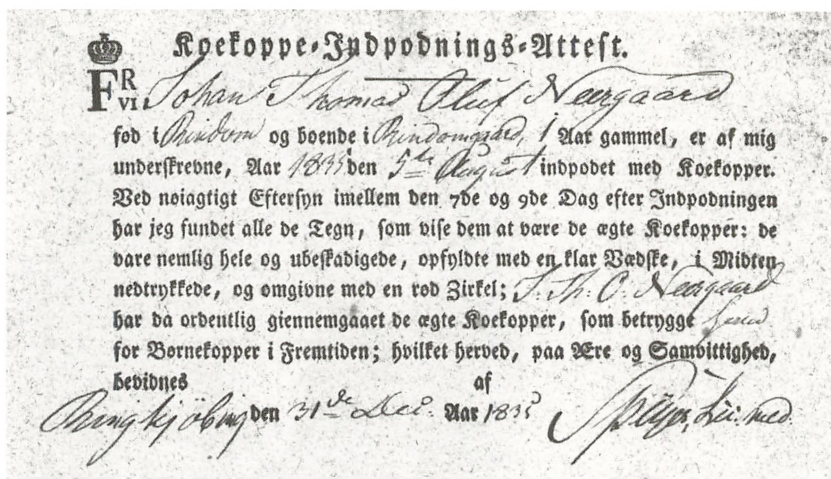 Koekoppe-Indpodnings-Attest.
FR VI Johan Thomas Oluf Neergaard
fød i Rindom og boende i Rindomgaard, 1 Aar gammel, er af mig
underskrevne, Aar 1835 den 5te August indpodet med Koekopper.
Ved nøiagtigt Eftersyn imellem den 7de og 9de Dag efter Indpodningen
har jeg fundet alle de Tegn, som vise dem at være de ægte Koekopper: de
vare nemlig hele og ubeskadigede, opfyldte med en klar Vædske, i Midten
nedtrykkede, og omgivne med en rød Zirkel; J. Th. O. Neergaard
har da ordentlig giennemgaaet de ægte Koekopper, som betrygge
for Børnekopper i Fremtiden; hvilket herved, paa Ære og Samvittighed,
bevidnes af
Ringkjöbing den 31de Dec. Aar 1835 Lic. med.